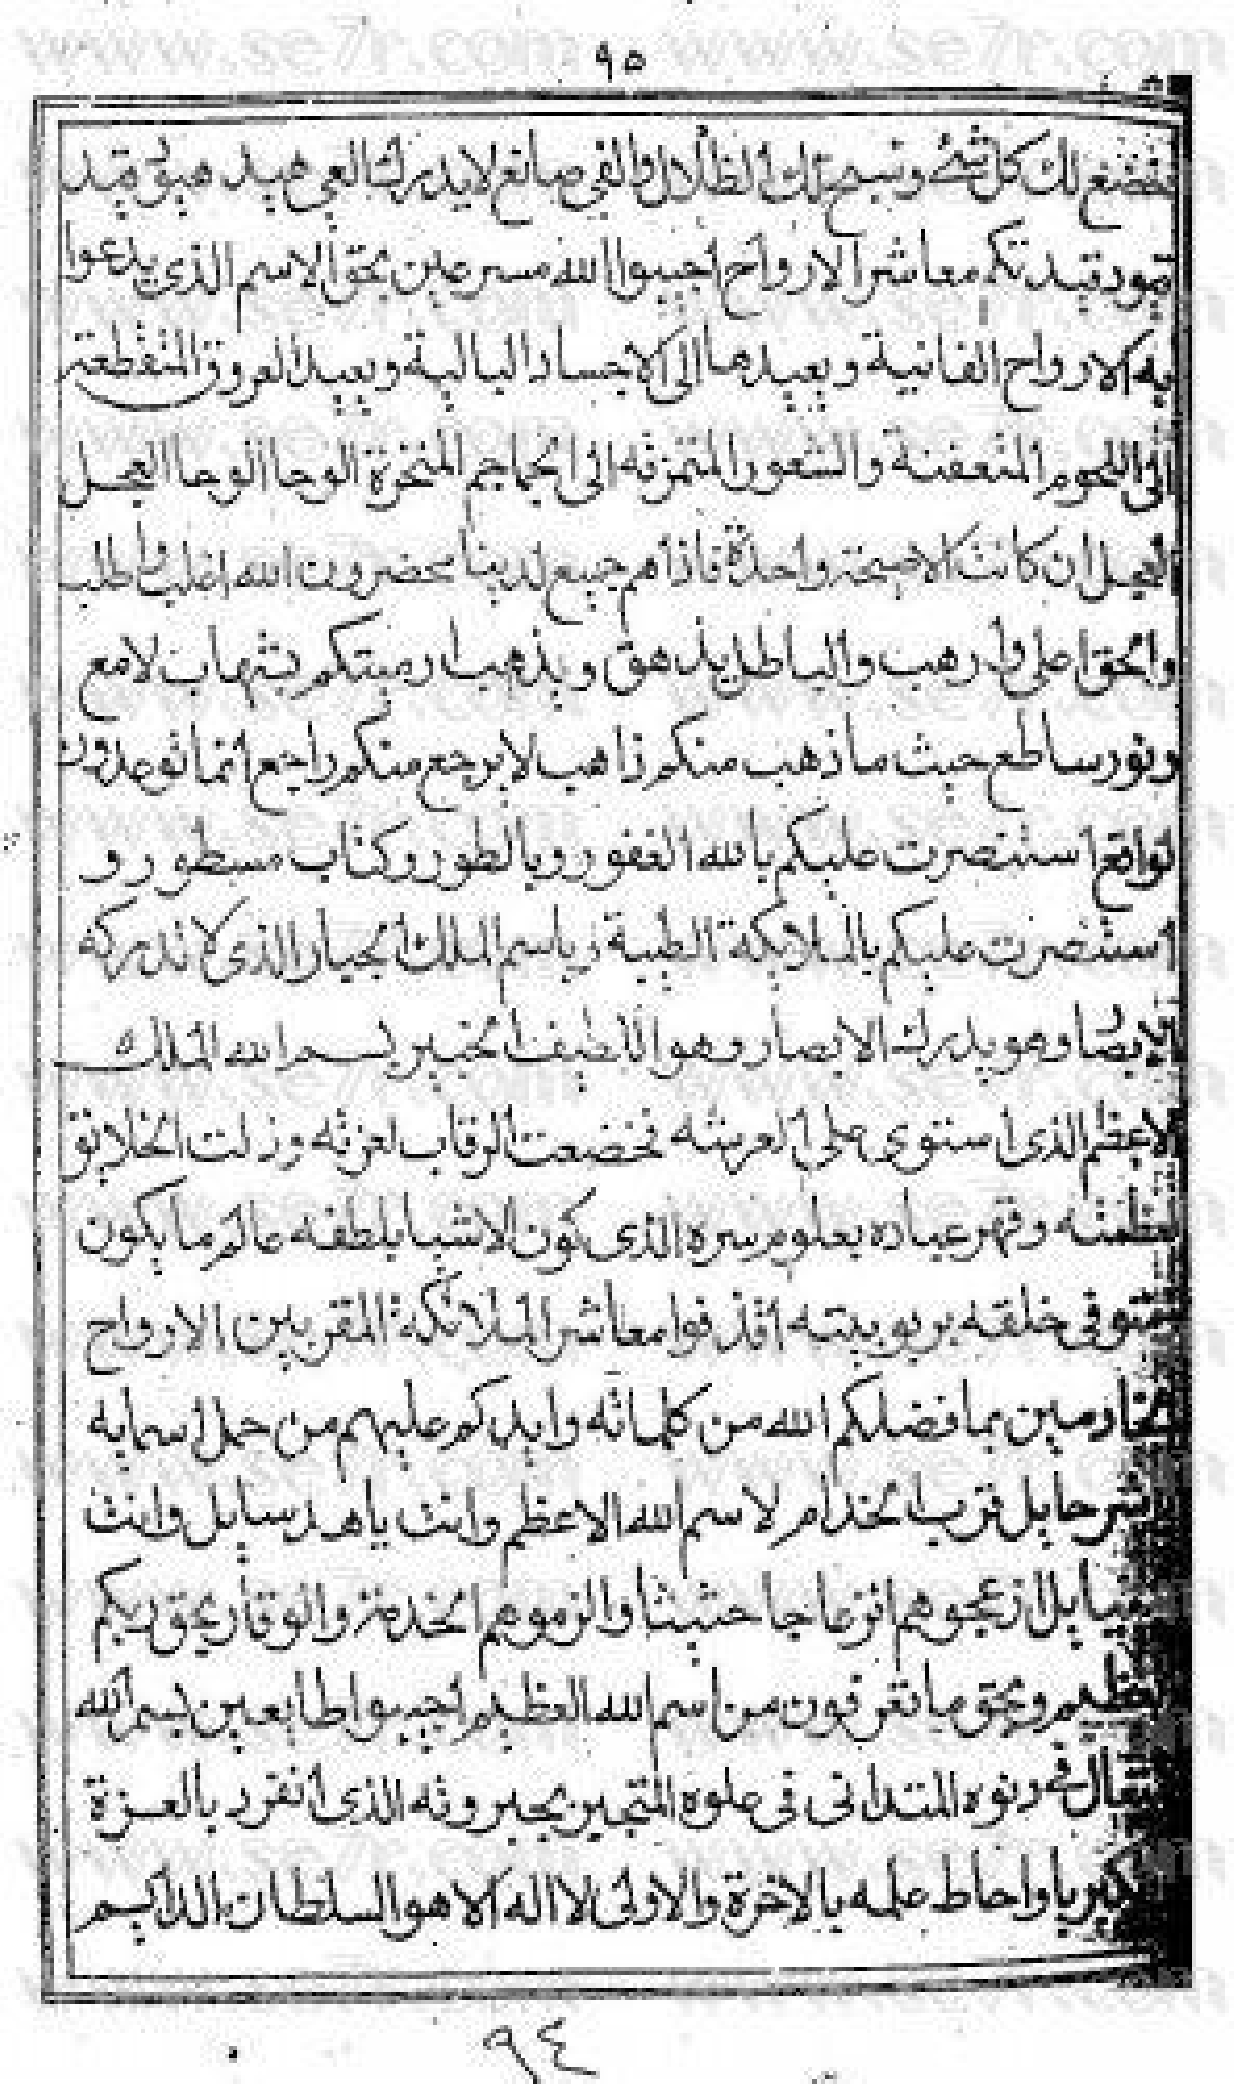 www.se7r.com www.se7r.com
٩٥
لك كل شئ وتسبح لك الظلال والفى صانع لا يدرك
معاشر الارواح اجيبوا الله مسرعين بحق الاسم الذى يدعوا
به الارواح الفانية ويعيدها الى الاجساد البالية ويعيد العروق المنقطعة
الى اللحوم المتعفنة والشعور المتمزقه الى الجماجم المنخرة الوحا الوحا العجل
العجل ان كانت الا صيحة واحدة فاذا هم جميع لدينا محضرون الله اغلب
والحق اعلى وارهب والباطل يذهق ويذهب ارميتكم بشهاب لامع
ونور ساطع حيث ما ذهب منكم ذاهب لا يرجع منكم راجع انما توعدون
لواقع استنصرت عليكم بالله الغفور وبالطور وكتاب مسطور و
استنصرت عليكم بالملايكة الطيبة وباسم الملك الجبار الذى لا تدركه
الابصار وهو يدرك الابصار وهو اللطيف الخبير بسم الله الملك
الاعظم الذى استوى على العرشه فخضعت الرقاب لعزته وذلت الخلايق
لعظمته وقهر عباده بعلوم سره الذى كون الاشيا بلطفه عالم ما يكون
فى خلقه بربوبيته اقذفوا معاشر الملائكة المقربين الارواح
بما فضلكم الله من كلماته وايدكم عليهم من حمل اسمايه
قرب الخدام لاسم الله الاعظم وانت ياهدسايل وانت
ازعجوهم انزعاجا حثيثا والزموهم الخدمة والوقار بحق ربكم
العظيم وبحق ما تعرفون من اسم الله العظيم اجيبوا طايعين بسم الله
فى دنوه المتدانى فى علوه المتجبر بجبروته الذى انفرد بالعزة
واحاط علمه بالاخرة والاولى لا اله الا هو السلطان
٩٤